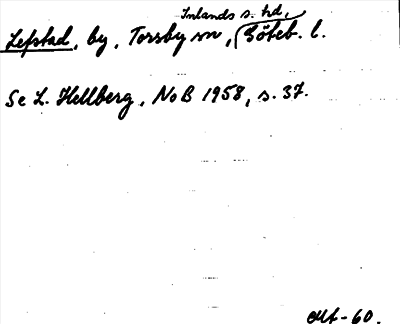 Inlands s. hd,
Lefstad, by, Torsby sn, Göteb. l.
Se L. Hellberg, NoB 1958, s. 37.
-60.